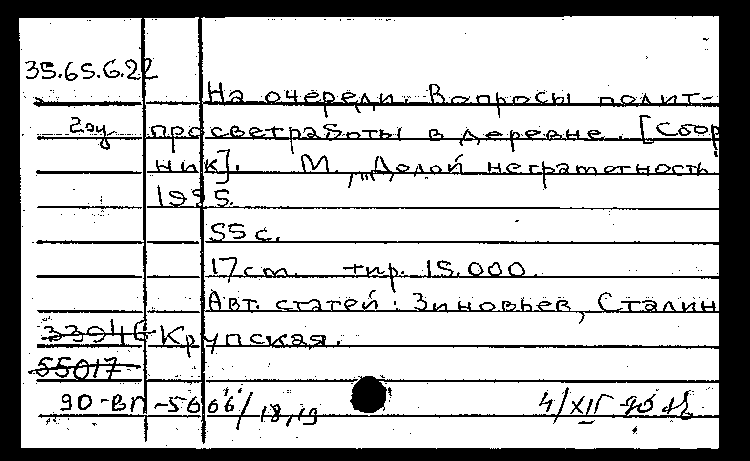 35.65.6.22
На очереди. Вопросы полит-
просветработы в деревне. [Сбор
ник]. М., „Долой неграмотность
1925.
55 с.
17 cm. тир. 15.000.
Авт. статей: Зиновьев, Сталин
Крупская.
55017
90-ВП-5666/18,19 4/XII-90